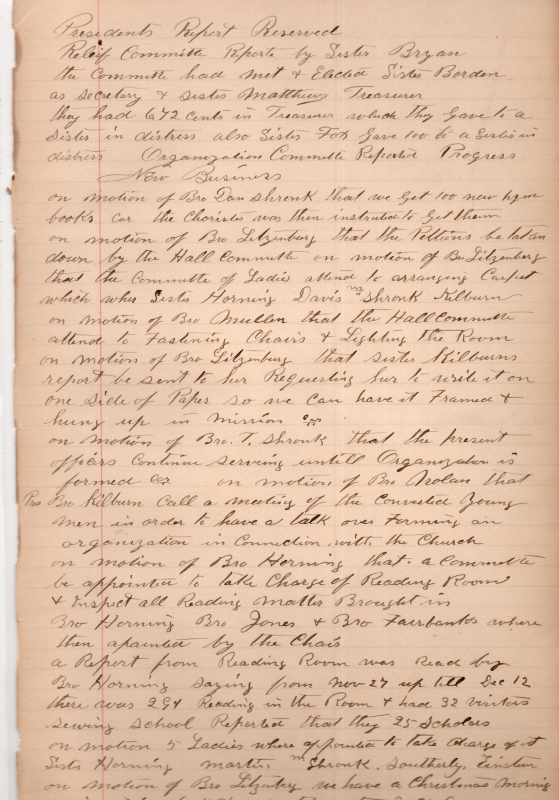 Presidents Report Reserved
Relief Committe Reporte by Sister Bryan
the Committe had met & Elected Sister Borden
as Secretary & Sister Matthews Treasurer
they had 6 72 cents in Treasurer which they Gave to a
Sister in distress also Sister Fox Gave 100 to a Sister in
distress Organization Committe Reported Progress
New Business
on motion of Bro Dan Shronk that we Get 100 new hymn
books car the Chorister was then instructed to Get them
on motion of Bro Litzenburg that the be taken
down by the Hall Committe on motion of Bro Litzenburg
that the Committe of Ladies attend to arranging Carpet
which wher Sister Horning Davis Shronk Kilburn
on motion of Bro Mullen that the Hall Committe
attend to Fastening Chairs & Lighting the Room
on motion of Bro Litzenburg that sister Kilburns
report be sent to her Requesting her to write it on
one side of Paper so we can have it Framed &
hung up in mission car
on motion of Bro. T. Shronk that the present
officers Continue serving untill Organization is
formed car on motion of Bro Nolan that
Pro Bro Kilburn Call a meeting of the Converted Young
men in order to have a talk over Forming an
organization in Conniction with the Church
on motion of Bro Horning that a Committe
be appointed to take Charge of Reading Room
& Inspect all Reading matter Brought in
Bro Horning Bro Jones & Bro Fairbanks where
then apainted by the Chair
a Report from Reading Room was Read by
Bro Horning saying from Nov 27 up till Dec 12
there was 294 Reading in the Room & had 32 visitors
sewing school Reported that they 25 scholars
on motion 5 Ladies where appointed to take Charge of it
Sister Horning martin Shronk, Southerly, Einsten
on motion of Bro Litzenberg we have a Christmas morning